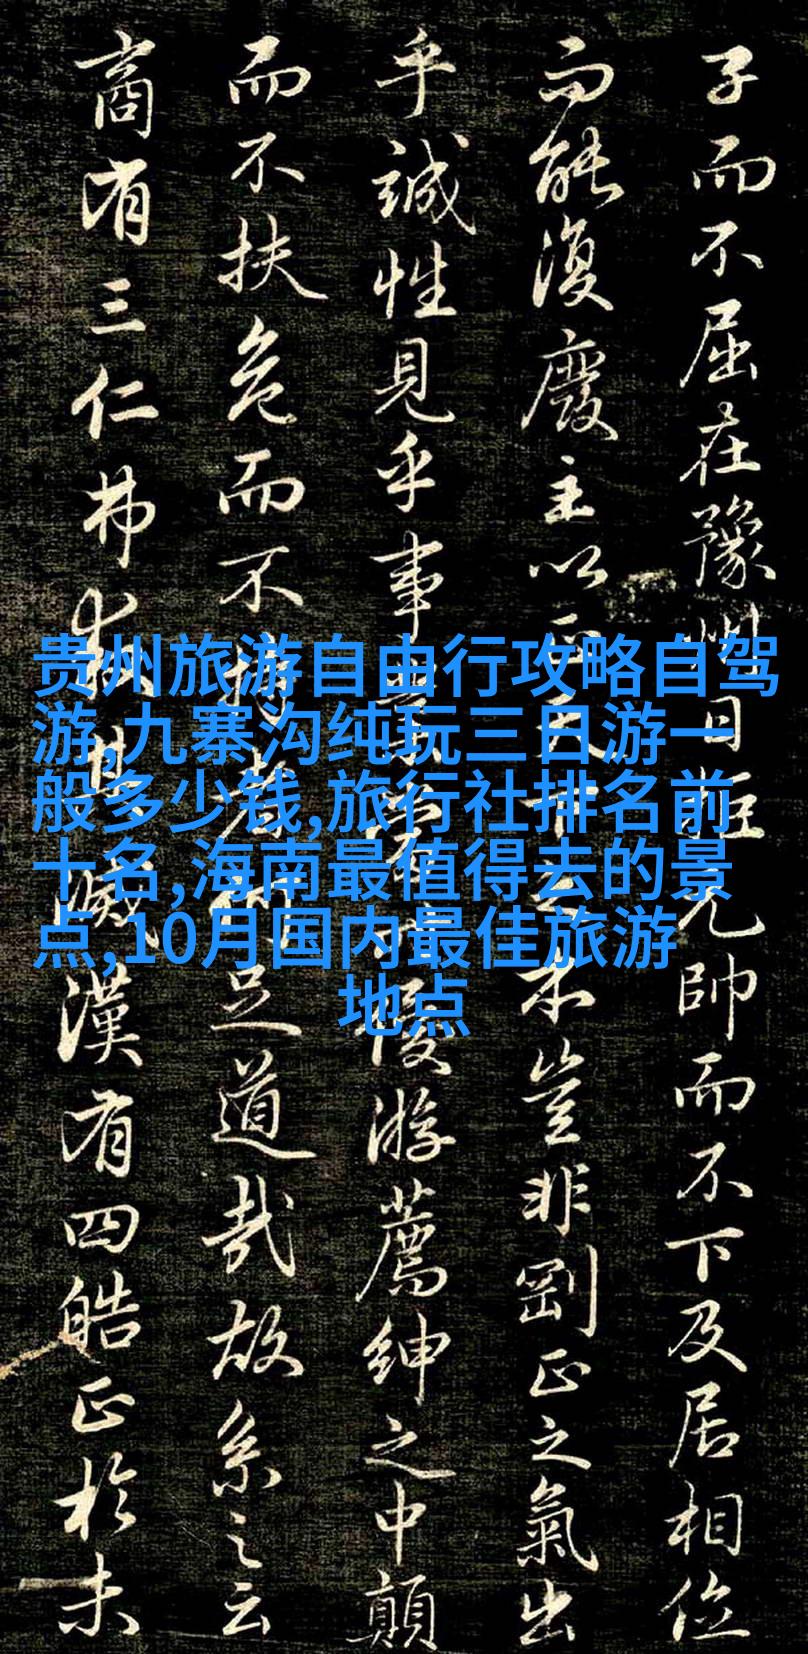 贵州旅游自由行攻略自驾
游,九寨沟纯玩三日游一
般多少钱,旅行社排名前
十名,海南最值得去的景
点,10月国内最佳旅游
地点
子而不屈在豫州日拒元帥而不下及居相位
而能復廢主以正天下之本豈非剛正之氣出
乎誠性見乎事業當時優游薦紳之中顛
而不扶危而不持者何足道哉故系之云
商有三仁弗救其滅漢有四皓正於未